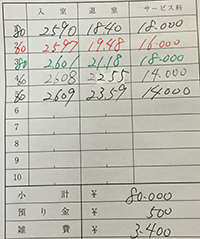 入室 退室 サービス料
2590 1840 18.000
2597 1948 16.000
2601 2118 18.000
2608 2255 14.000
2609 2359 14.000
6
7
8
9
10
小計 ¥ 80.000
預り金 ¥ 500
雑費 ¥ 3.400